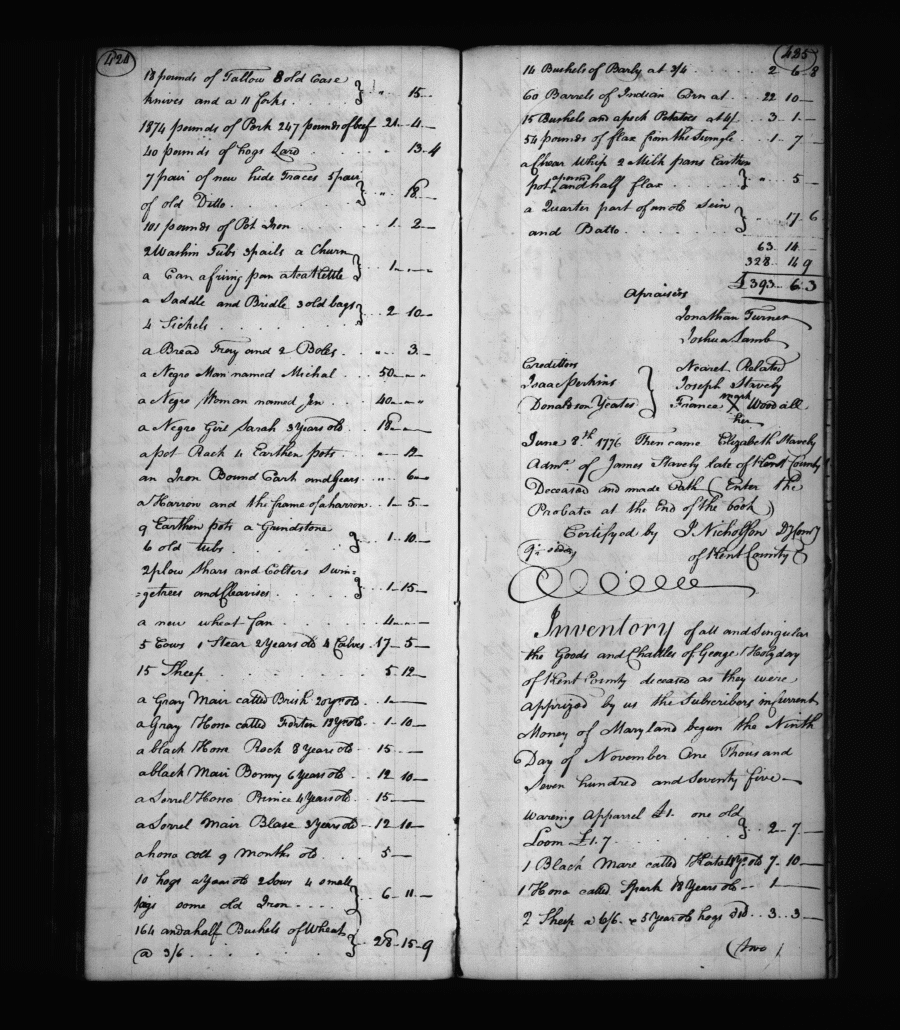 424
18 pounds of Tallow 8 old Case
knives and a 11 forks . . . " 15 —
1874 pounds of Pork 247 pounds of beef 21 4 —
40 pounds of hogs Lard . . . " 13 4
7 pair of new hide Traces 5 pair
of old Ditto . . . " 18 —
101 pounds of Pot Iron . . . 1 2 —
2 Washin Tubs 3 pails a Churn
a Can a friing pan a tea Kettle 1 — —
a Saddle and Bridle 3 old bags
4 Sickels . . . 2 10 —
a Bread Troy and 2 Boles . . . " 3 —
a Negro Man named Michal . . 50 — "
a Negro Woman named Jen . . 40 — "
a Negro Girl Sarah 3 Years old . . 18 — —
a pot Rack 4 Earthen pots . . . " 12 —
an Iron Bound Cart and Gears . . " 6 —
a Harrow and the frame of a harrow . 1 5 —
9 Earthen pots a Grindstone
6 old tubs . . . 1 10 —
2 plow Shars and Colters Swin=
=getrees and Cleavises . . . 1 15 —
a new wheat fan . . . 4 — "
5 Cows 1 Stear 2 Years old 4 Calves 17 5 —
15 Sheep . . . 5 12 —
a Gray Mair called Brish 20 yr old . . 1 —
a Gray Horse called Forten 18 Yr old . . 1 10 —
a black Horse Rock 8 Years old . . 15 — —
a black Mair Bonny 6 Years old . . 12 10 —
a Sorrel Horse Prince 4 Years old . . 15 — —
a Sorrel Mair Blase 3 Years old . . 12 10 —
a horse colt 9 months old . . . 5 —
10 hogs a Year old 2 Sows 4 small
pigs some old Iron . . . 6 11 —
164 and a half Bushels of Wheat
@ 3/6 . . . 28 15 9
425
14 Bushels of Barly at 3/4 . . . 2 6 8
60 Barrels of Indian Corn at . . 22 10 —
15 Bushels and a peck Potatoes at 4/. . 3 1 —
54 pounds of flax from the Swingle . . 1 7 —
2 Milk pans Earthen
pot a pound and half flax . . . " 5 —
a Quarter part of an old Sein
and Batto . . . " 17 6
63 14 —
328 14 9
£393 6 3
Apraisers
Jonathan Turner
Joshua Lamb
Creditors Nearest Related
Isaac Perkins Joseph Stavely
Donaldson Yeates France X Woodall
mark
her
June 8th 1776 Then came Elizabeth Stavely
Admx of James Stavely late of Kent County
Deceased and made Oath (Enter the
Probate at the End of the book)
Certifyed by J Nicholson Dy Comy
of Kent County
9 sides
Inventory of all and Singular
the Goods and Chattles of George Holyday
of Kent County deceased as they were
apprized by us the Subscribers in Current
Money of Maryland begun the Ninth
Day of November One Thousand
Seven hundred and Seventy five —
Wareing Apparrel £1. one old
Loom £1.7 . . . 2 7 —
1 Black Mare called Kate 4 Yr. old 7 10 —
1 Horse called Spark 18 Years old . . 1 —
2 Sheep a 6/6. & 5 Year old hogs . . 3 3 —
(two